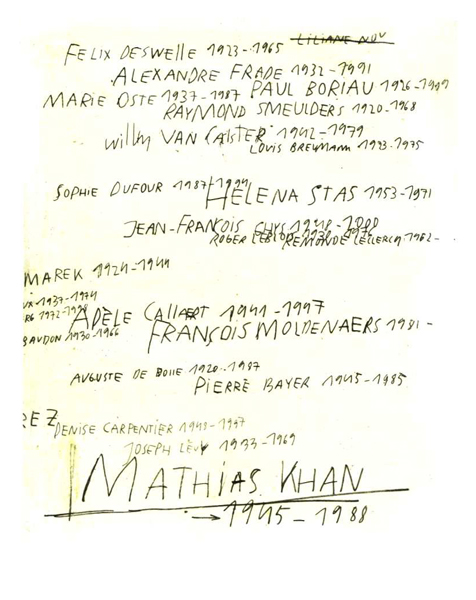 LILIANE NOV
FELIX DESWELLE 1923-1965
ALEXANDRE FRADE 1932-1991
PAUL BORIAU 1926-1999
MARIE OSTE 1937-1987
RAYMOND SMEULDERS 1920-1968
Willy VAN CALSTER 1942-1979
LOUIS 1923-1975
SOPHIE DUFOUR 1987-1994
HELENA STAS 1953-1971
JEAN-FRANÇOIS
ROGER
REMONDE LECLERCQ 1962-
MAREK 1924-1944
UX 1937-1974
RG 1972-1978
BAUDON 1930-1966
ADÈLE CALLAERT 1941-1997
FRANÇOIS MOLDENAERS 1981-
AUGUSTE DE 1920-1987
PIERRE BAYER 1945-1985
REZ
DENISE CARPENTIER 1948-1997
JOSEPH LÉVY 1933-1969
MATHIAS KHAN
→ 1945-1988